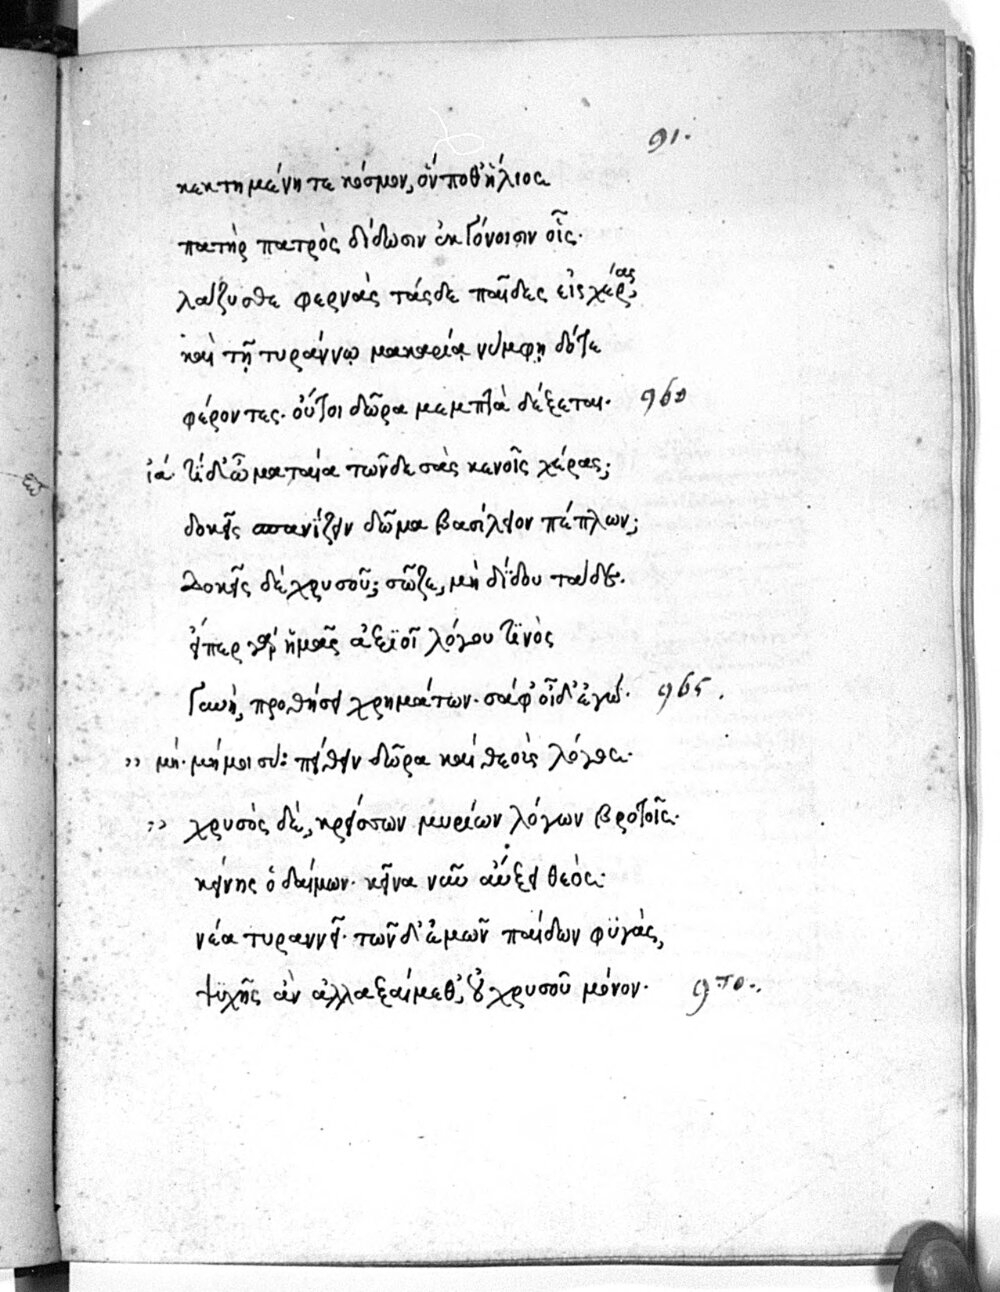 91.
κεκτημένη τε κόσμον, ὅν ποθ' ἥλιος
πατὴρ πατρὸς δίδωσιν ἐκγόνοισιν οἷς.
λάζυσθε φερνὰς τάςδε παῖδες εἰς χέρας,
καὶ τῇ τυράννῳ μακαρίᾳ νύμφῃ δότε
φέροντες. οὔτοι δῶρα μεμπτὰ δέξεται. 960
ἰά. τί δ' ὦ ματαία τῶνδε σὰς κενοῖς χέρας;
δοκεῖς σπανίζειν δῶμα βασίλειον πέπλων;
Δοκεῖς δὲ χρυσοῦ; σῶζε, μὴ δίδου τάδε.
εἴπερ γὰρ ἡμᾶς ἀξϊοῖ λόγου τϊνὸς
γυνὴ, προθήσει χρημάτων. σάφ' οἶδ' ἐγώ. 965.
,, μή. μή μοι σύ: πείθειν δῶρα καὶ θεοὺς λόγος.
,, χρυσὸς δὲ, κρείσσων μυρίων λόγων βροτοῖς.
κείνης ὁ δαίμων. κεῖνα νῦν αὔξει θεός.
νέα τυραννεῖ. τῶν δ' ἐμῶν παίδων φϋγὰς,
ψϋχῆς ἂν ἀλλαξαίμεθ', οὐ χρυσοῦ μόνον. 970.